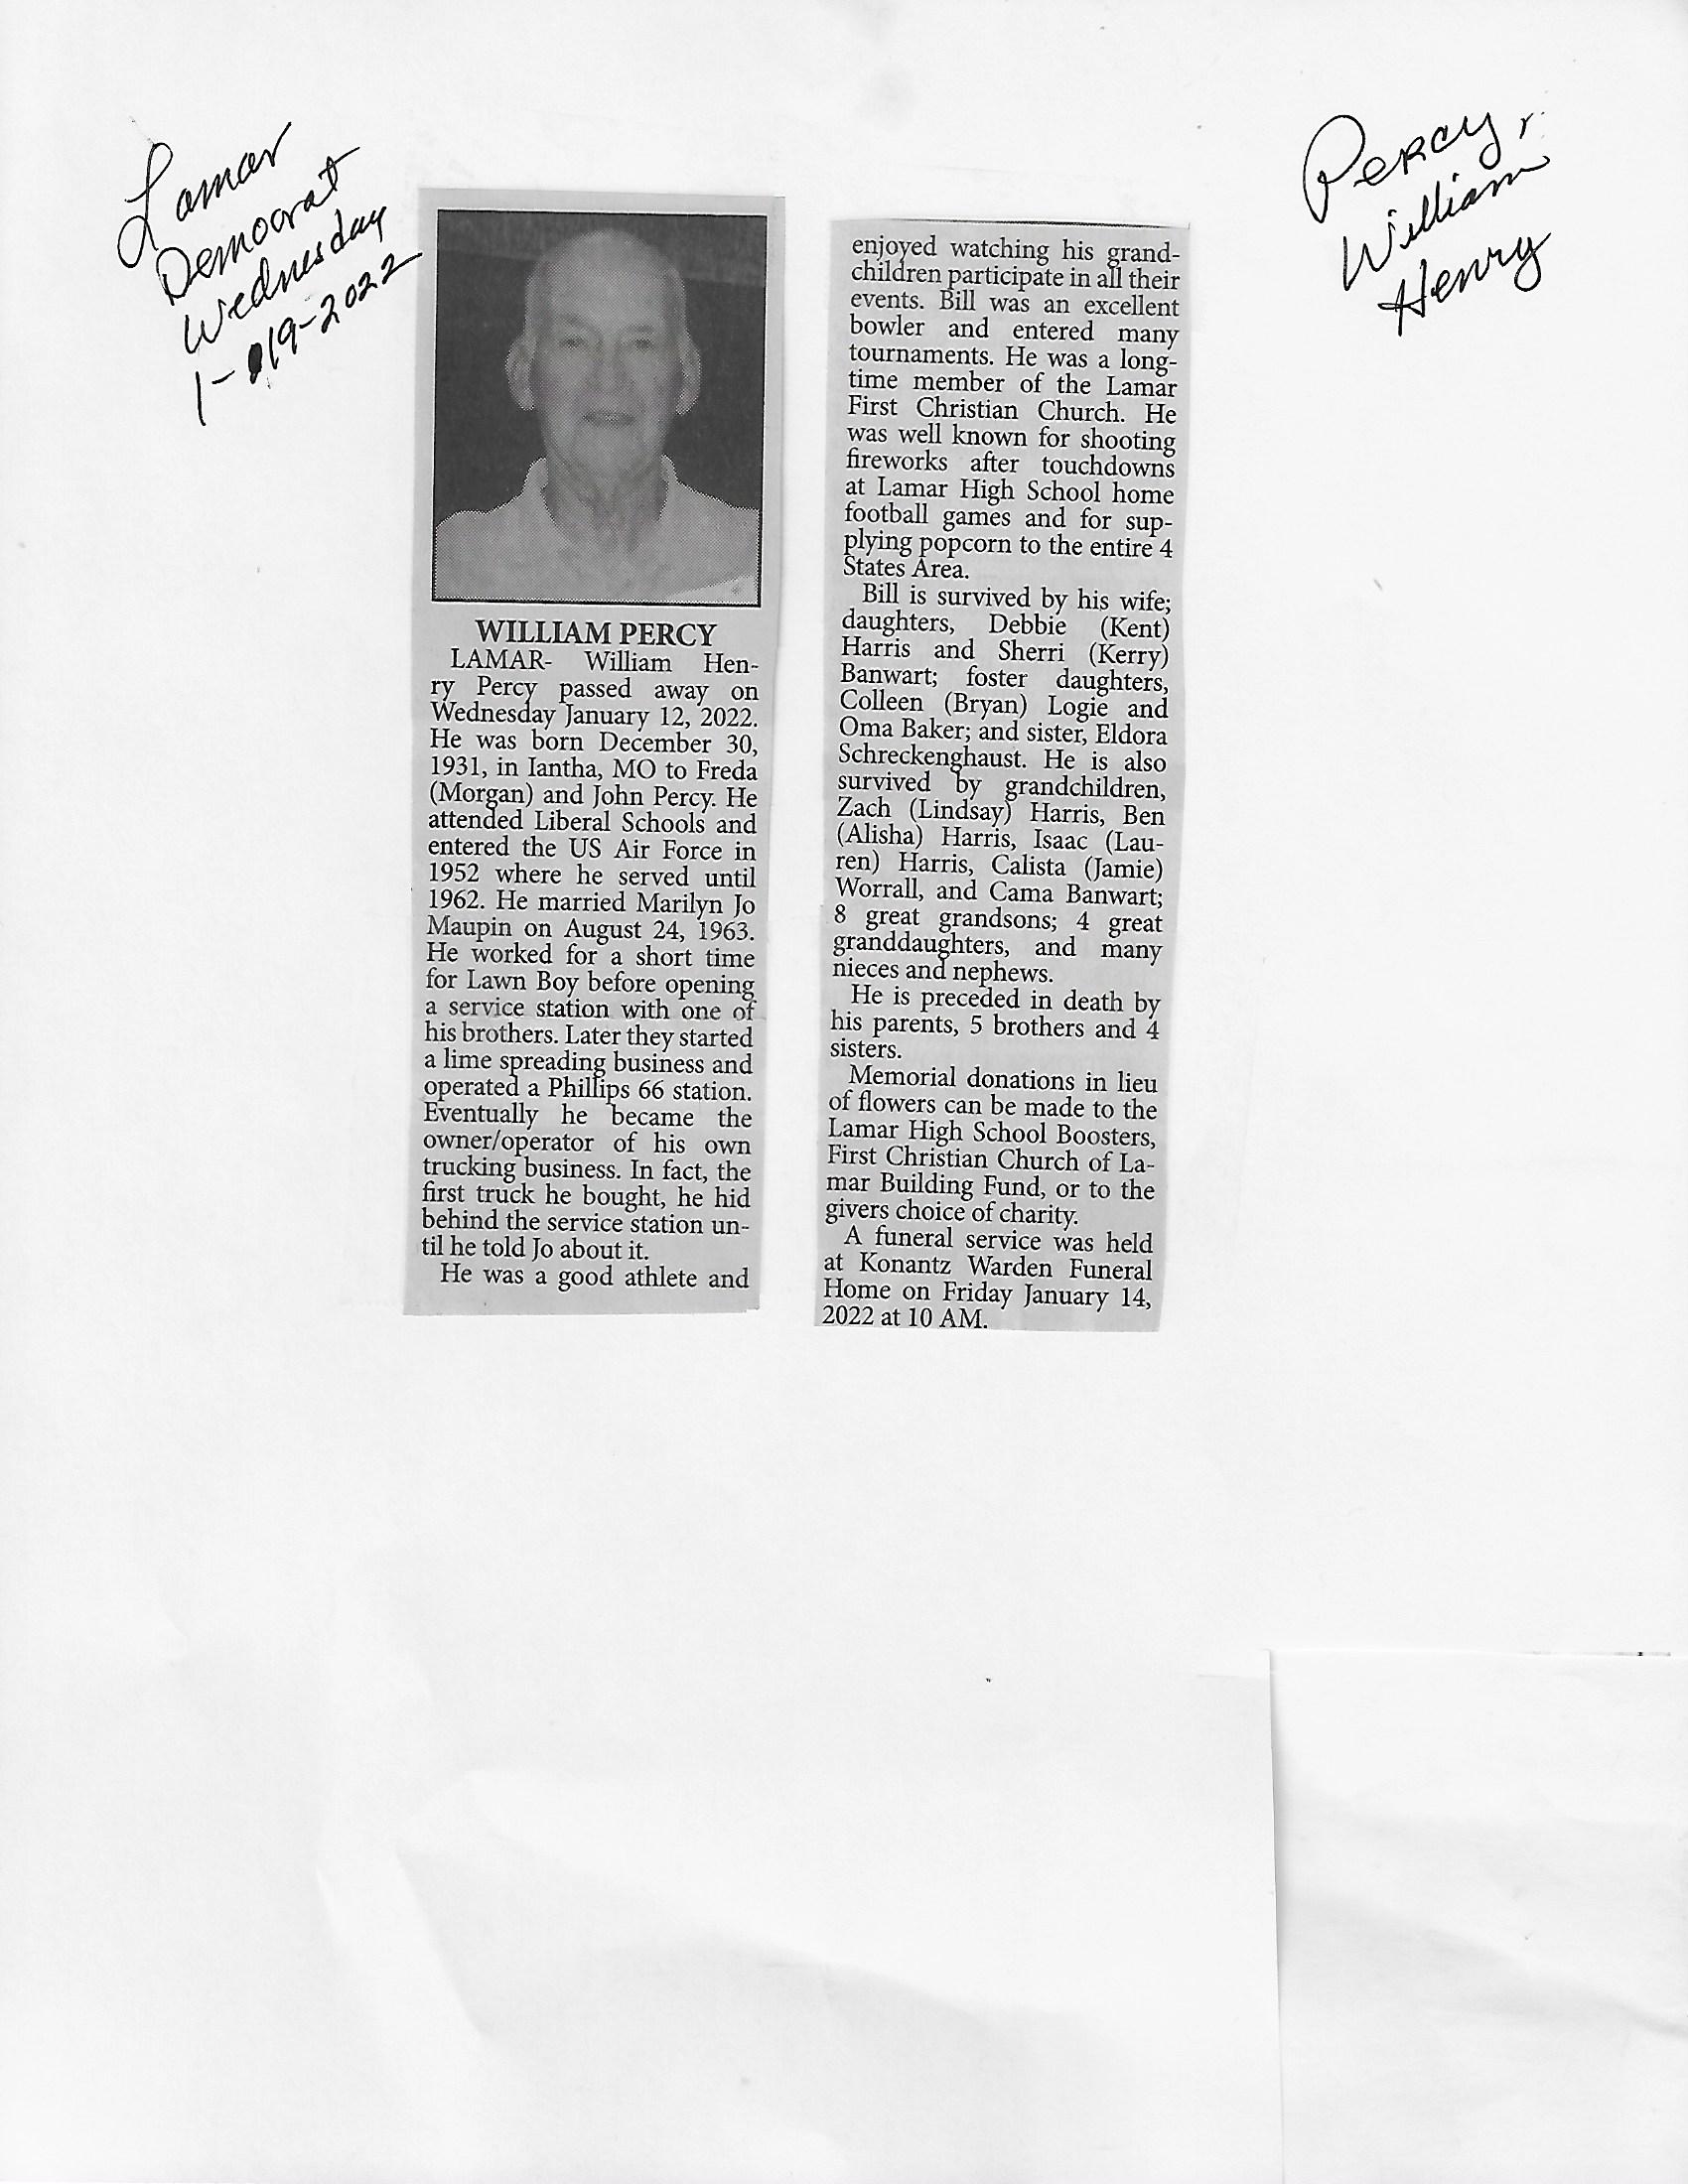 Lamar
Democrat
Wednesday
1-19-2022
Percy,
William
Henry
WILLIAM PERCY
LAMAR- William Hen-
ry Percy passed away on
Wednesday January 12, 2022.
He was born December 30,
1931, in Iantha, MO to Freda
(Morgan) and John Percy. He
attended Liberal Schools and
entered the US Air Force in
1952 where he served until
1962. He married Marilyn Jo
Maupin on August 24, 1963.
He worked for a short time
for Lawn Boy before opening
a service station with one of
his brothers. Later they started
a lime spreading business and
operated a Phillips 66 station.
Eventually he became the
owner/operator of his own
trucking business. In fact, the
first truck he bought, he hid
behind the service station un-
til he told Jo about it.
He was a good athlete and
enjoyed watching his grand-
children participate in all their
events. Bill was an excellent
bowler and entered many
tournaments. He was a long-
time member of the Lamar
First Christian Church. He
was well known for shooting
fireworks after touchdowns
at Lamar High School home
football games and for sup-
plying popcorn to the entire 4
States Area.
Bill is survived by his wife;
daughters, Debbie (Kent)
Harris and Sherri (Kerry)
Banwart; foster daughters,
Colleen (Bryan) Logie and
Oma Baker; and sister, Eldora
Schreckenghaust. He is also
survived by grandchildren,
Zach (Lindsay) Harris, Ben
(Alisha) Harris, Isaac (Lau-
ren) Harris, Calista (Jamie)
Worrall, and Cama Banwart;
8 great grandsons; 4 great
granddaughters, and many
nieces and nephews.
He is preceded in death by
his parents, 5 brothers and 4
sisters.
Memorial donations in lieu
of flowers can be made to the
Lamar High School Boosters,
First Christian Church of La-
mar Building Fund, or to the
givers choice of charity.
A funeral service was held
at Konantz Warden Funeral
Home on Friday January 14,
2022 at 10 AM.